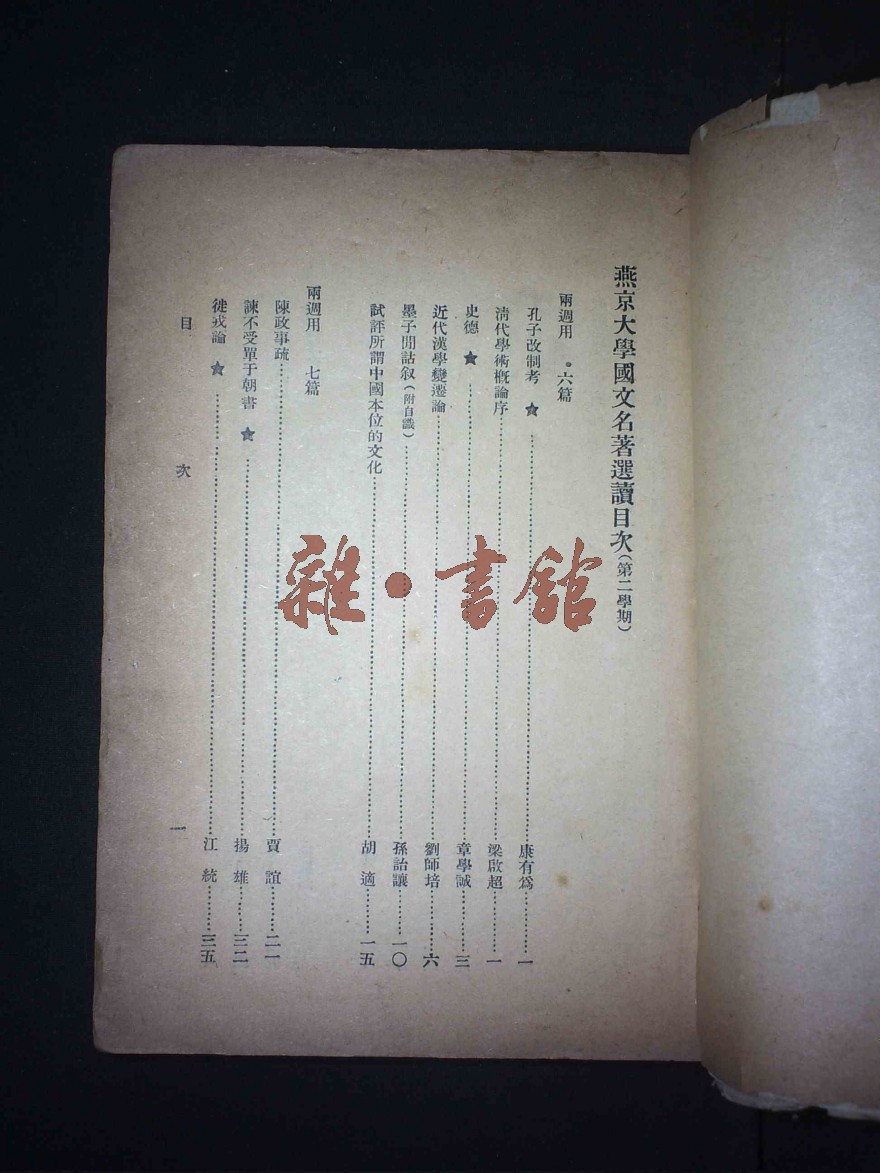 燕京大學國文名著選讀目次(第二學期)
兩週用 六篇
孔子改制考 ★……康有為……一
清代學術概論序……梁啟超……一
史德 ★……章學誠……三
近代漢學變遷論……劉師培……六
墨子閒詁叙(附自識)……孫詒讓……一〇
試評所謂中國本位的文化……胡適……一五
兩週用 七篇
陳政事疏……賈誼……二一
諫不受單于朝書 ★……揚雄……三二
徙戎論 ★……江統……三五
目次 一
雜·書館